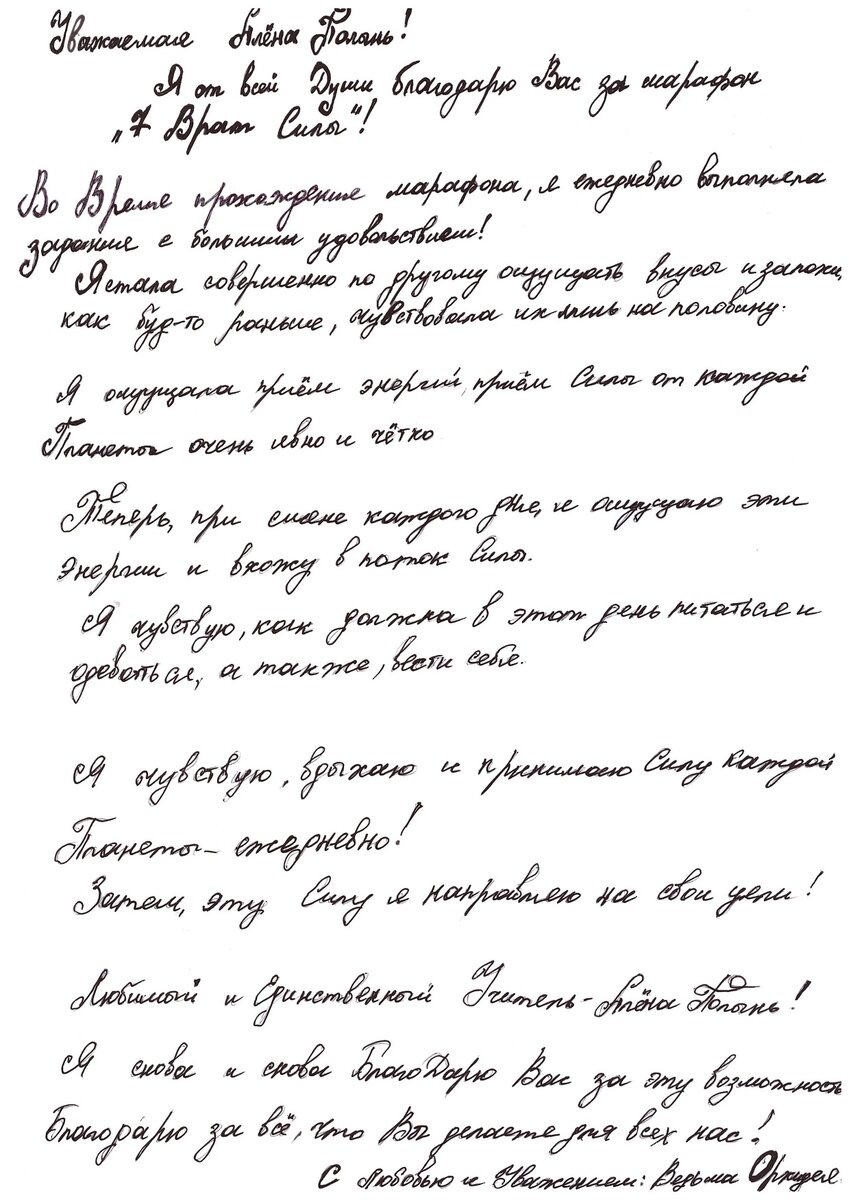 Уважаемая Алёна Полынь!
Я от всей Души благодарю Вас за марафон
„7 Врат Силы"!
Во Время прохождение марафона, я ежедневно выполняла
задание с большим удовольствием!
Я стала совершенно по другому ощущать вкусы и запахи,
как буд-то раньше, чувствовала их лишь на половину.
Я ощущала приём энергий, приём Силы от каждой
Планеты очень явно и чётко
Теперь, при смене каждого дня, я ощущаю эти
Энергии и вхожу в поток Силы.
Я чувствую, как должна в этот день питаться и
одеваться, а также, вести себя.
Я чувствую, вдыхаю и принимаю Силу каждой
Планеты – ежедневно!
Затем, эту Силу я направляю на свои цели!
Любимый и Единственный Учитель – Алёна Полынь!
Я снова и снова БлагоДарю Вас за эту возможность
Благодарю за всё, что Вы делаете для всех нас!
С Любовью и Уважением: Ведьма Орхидея.